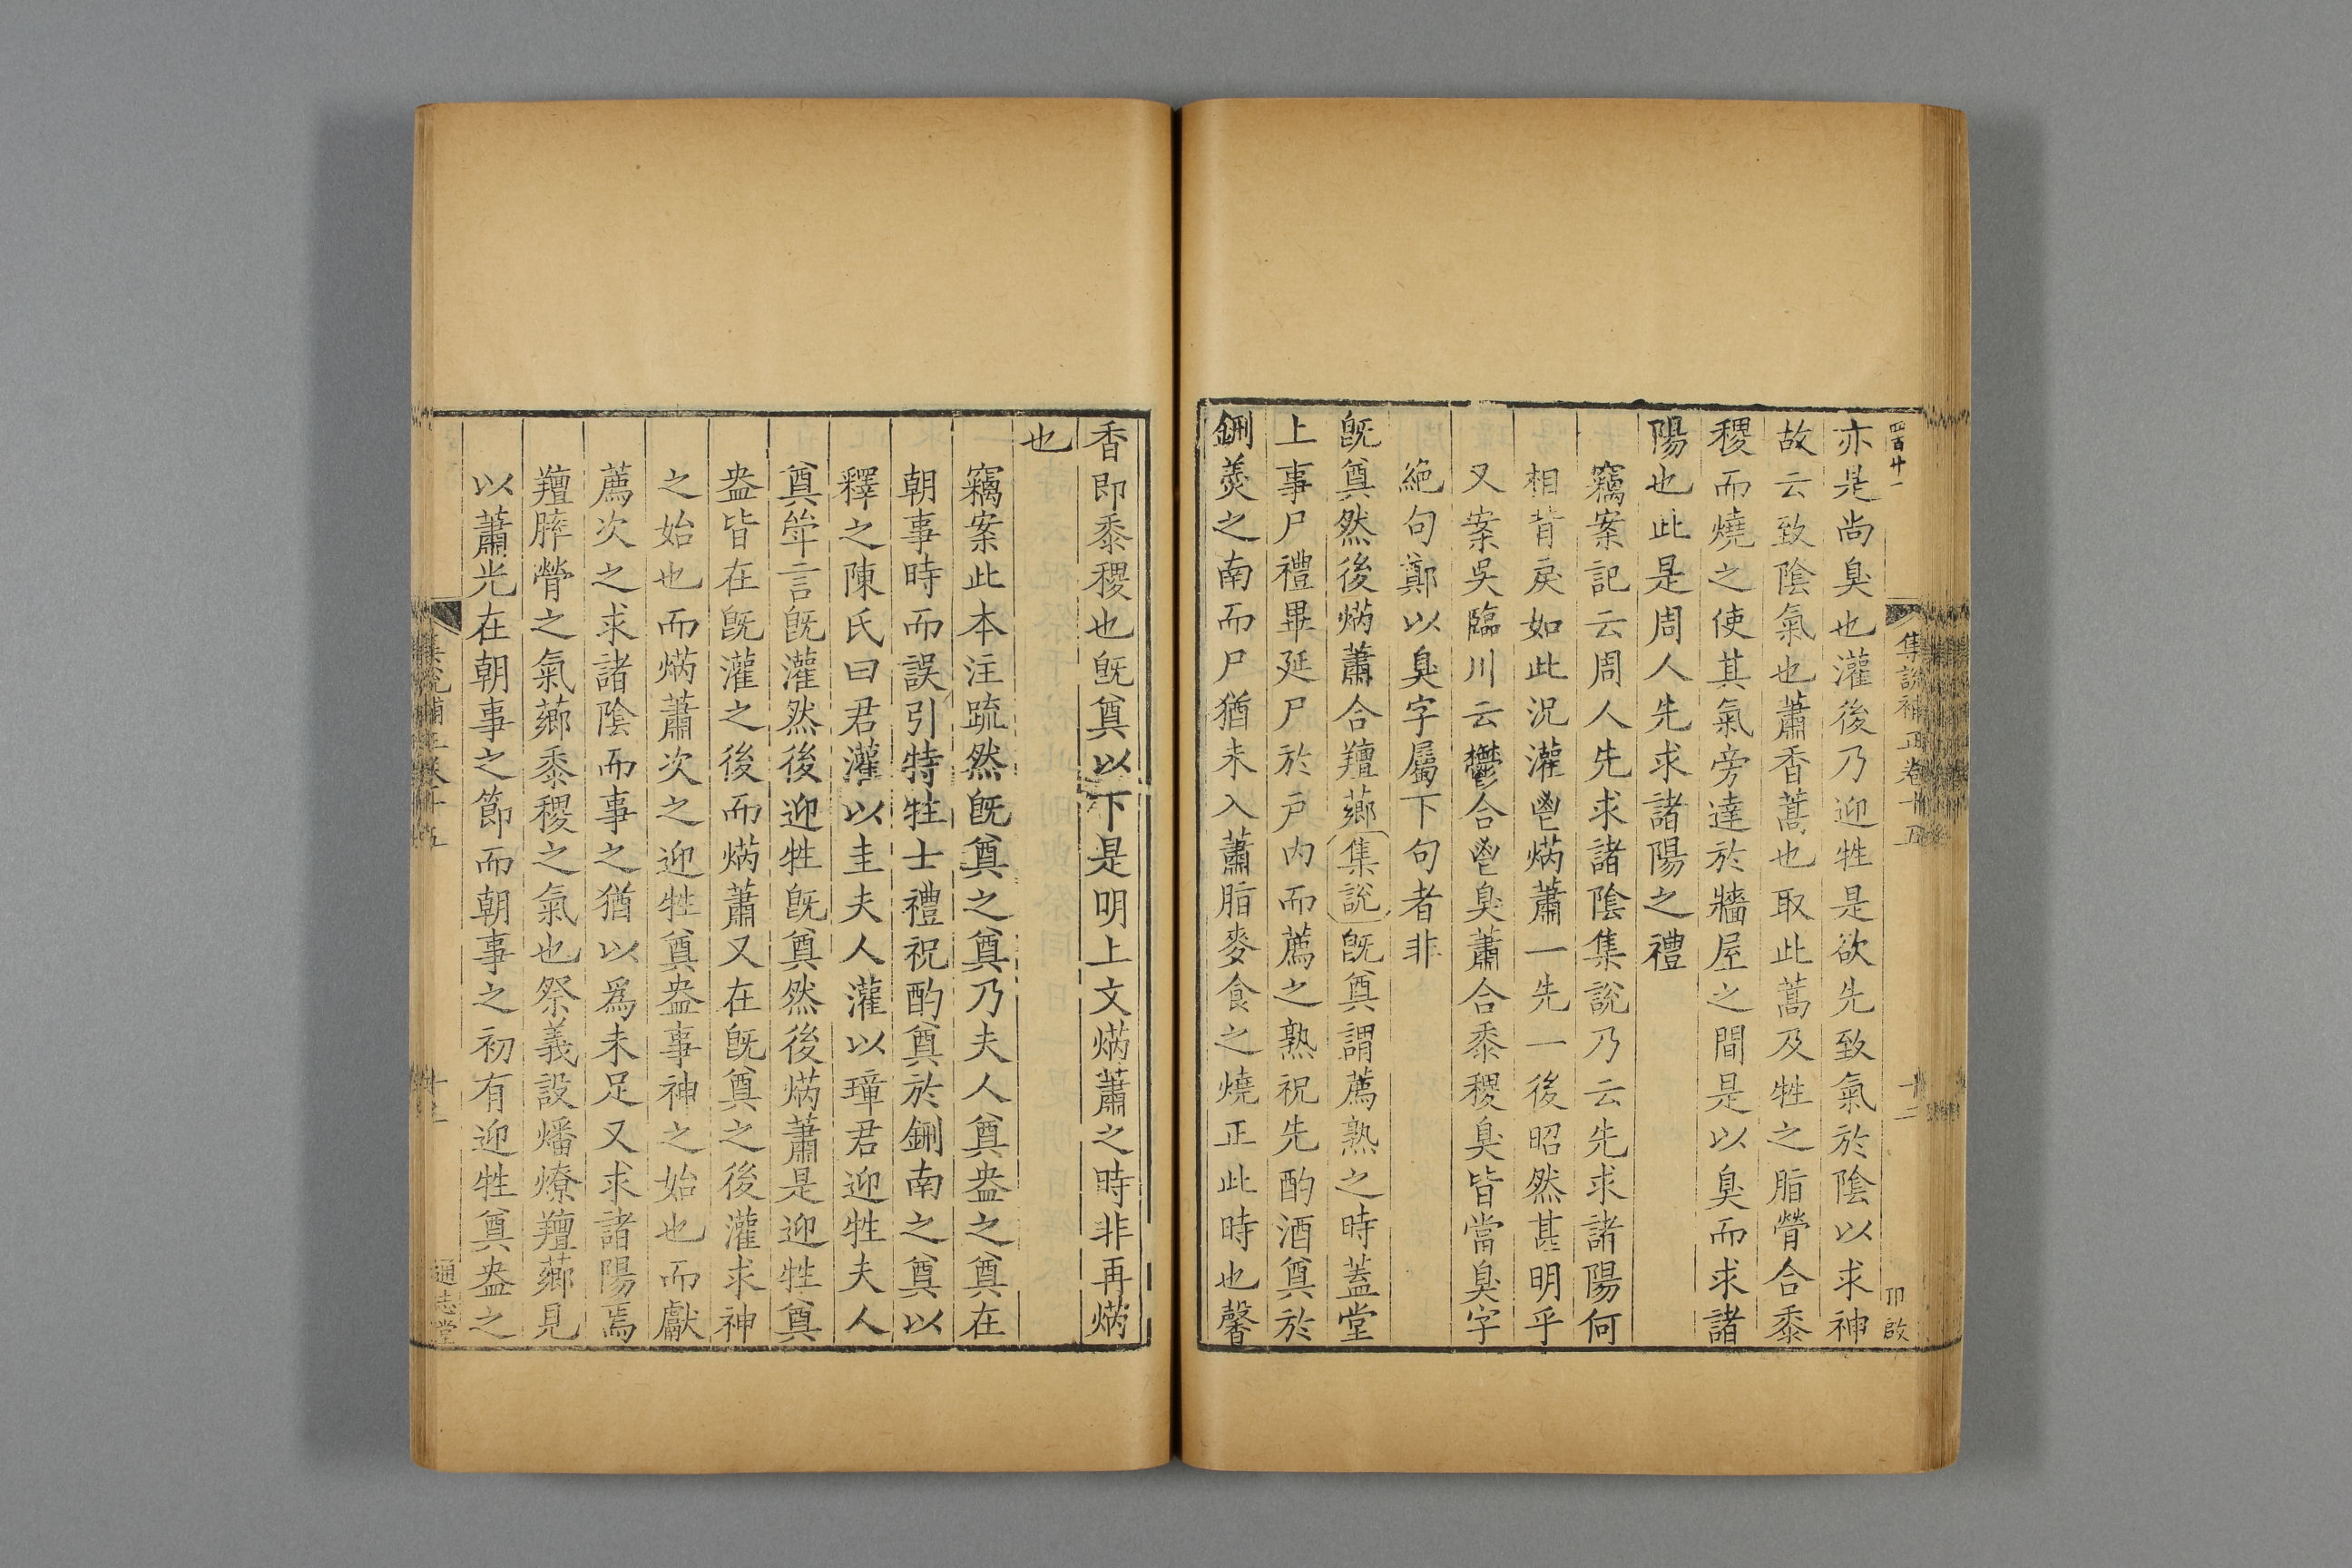 四百廿一
集說補正卷十五
十二
卬啟
亦是尚臭也灌後乃迎牲是欲先致氣於陰以求神
故云致陰氣也蕭香蒿也取此蒿及牲之脂膋合黍
稷而燒之使其氣旁達於牆屋之間是以臭而求諸
陽也此是周人先求諸陽之禮
竊案記云周人先求諸陰集說乃云先求諸陽何
相背戾如此況灌鬯焫蕭一先一後昭然甚明乎
又案吳臨川云鬱合鬯臭蕭合黍稷臭皆當臭字
絶句鄭以臭字屬下句者非
旣奠然後焫蕭合羶薌集說旣奠謂薦熟之時蓋堂
上事尸禮畢延尸於戶內而薦之熟祝先酌酒奠於
鉶羮之南而尸猶未入蕭脂麥食之燒正此時也馨
香即黍稷也旣奠以下是明上文焫蕭之時非再焫
也
竊案此本注疏然旣奠之奠乃夫人奠盎之奠在
朝事時而誤引特牲士禮祝酌奠於鉶南之奠以
釋之陳氏曰君灌以圭夫人灌以璋君迎牲夫人
奠斝言旣灌然後迎牲旣奠然後焫蕭是迎牲奠
盎皆在旣灌之後而焫蕭又在旣奠之後灌求神
之始也而焫蕭次之迎牲奠盎事神之始也而獻
薦次之求諸陰而事之猶以爲未足又求諸陽焉
羶膟膋之氣薌黍稷之氣也祭義設燔燎羶薌見
以蕭光在朝事之節而朝事之初有迎牲奠盎之
通志堂